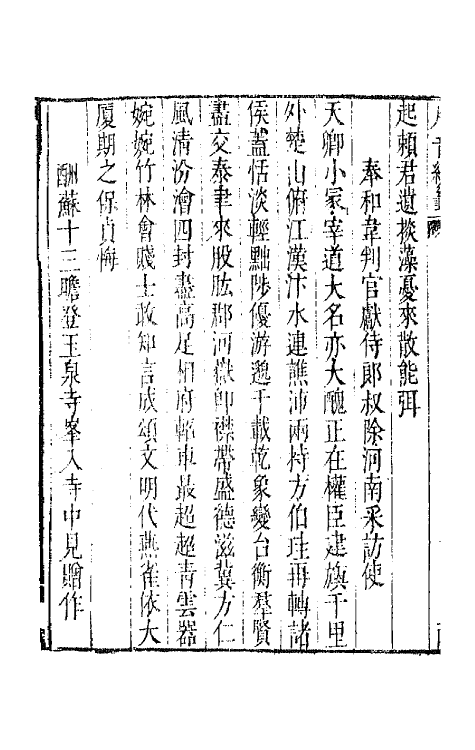 起賴君遺掞藻憂來散能弭
奉和韋判官獻侍郎叔除河南采訪使
天卿小冢宰道大名亦大醜正在權臣建旟千里
外楚山俯江漢汴水連譙沛兩持方伯珪再轉諸
侯蓋恬淡輕黜陟優游邈千載乾象變台衡羣賢
盡交泰聿來股肱郡河嶽即襟帶盛德滋冀方仁
風清汾澮四封盡高足相府軺車最超超青雲器
婉婉竹林會賤士敢知言成頌文明代燕雀依大
廈期之保貞悔
酬蘇十三瞻登玉泉寺峯入寺中見贈作